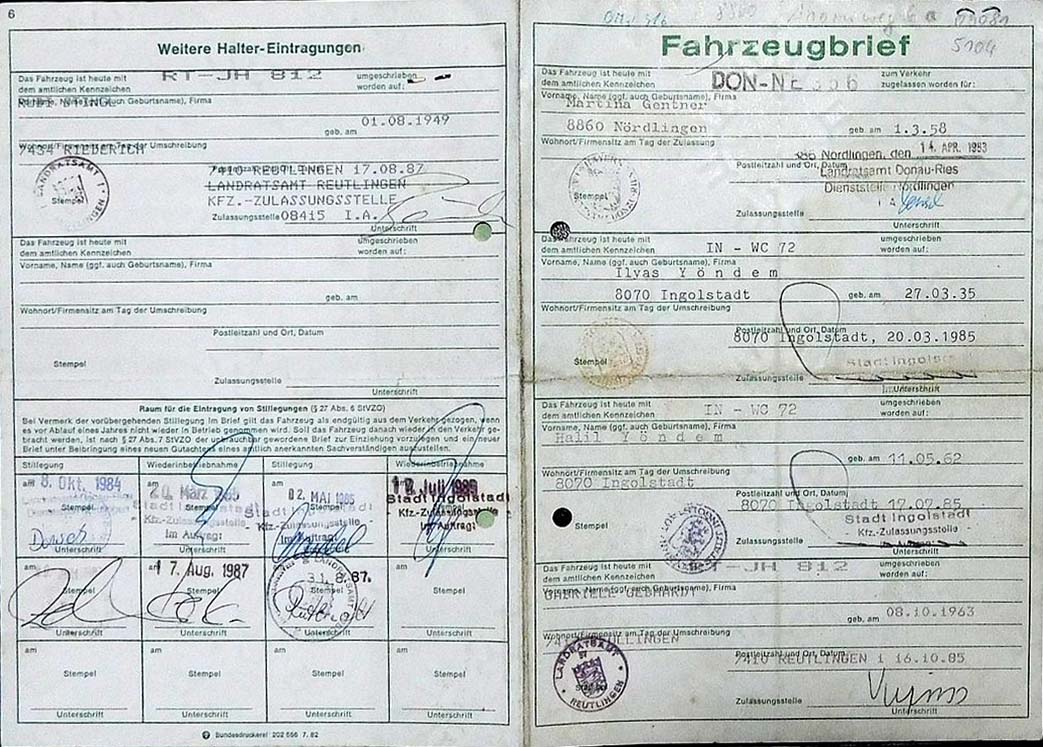 6
Weitere Halter-Eintragungen
Das Fahrzeug ist heute mit
dem amtlichen Kennzeichen
RT-JH 812
umgeschrieben
worden auf:
Vorname, Name (ggf. auch Geburtsname), Firma
geb. am 01.08.1949
Wohnort/Firmensitz am Tag der Umschreibung
7434 RIEDERICH
LANDRATSAMT
Stempel
7410 REUTLINGEN 17.08.87
LANDRATSAMT REUTLINGEN
KFZ.-ZULASSUNGSSTELLE
Zulassungsstelle 08415 I.A.
Unterschrift
Das Fahrzeug ist heute mit
dem amtlichen Kennzeichen
umgeschrieben
worden auf:
Vorname, Name (ggf. auch Geburtsname), Firma
geb. am
Wohnort/Firmensitz am Tag der Umschreibung
Postleitzahl und Ort, Datum
Stempel
Zulassungsstelle
Unterschrift
Raum für die Eintragung von Stillegungen (§ 27 Abs. 6 StVZO)
Bei Vermerk der vorübergehenden Stillegung im Brief gilt das Fahrzeug als endgültig aus dem Verkehr gezogen, wenn
es vor Ablauf eines Jahres nicht wieder in Betrieb genommen wird. Soll das Fahrzeug danach wieder in den Verkehr ge-
bracht werden, ist nach § 27 Abs. 7 StVZO der unbrauchbar gewordene Brief zur Einziehung vorzulegen und ein neuer
Brief unter Beibringung eines neuen Gutachtens eines amtlich anerkannten Sachverständigen auszustellen.
Stillegung Wiederinbetriebnahme Stillegung Wiederinbetriebnahme
am 8. Okt. 1984
Stempel
Unterschrift
am 20. März 1985
Stempel
Stadt Ingolstadt
Kfz.-Zulassungsstelle
Im Auftrag:
Unterschrift
am 02. MAI 1985
Stempel
Stadt Ingolstadt
Kfz.-Zulassungsstelle
Im Auftrag:
Unterschrift
Juli 1985
Stadt Ingolstadt
Stempel
Kfz.-Zulassungsstelle
Im Auftrag:
Unterschrift
am
Stempel
Unterschrift
am 17. Aug. 1987
Stempel
Unterschrift
87.
Unterschrift
am
Stempel
Unterschrift
am am am am
Stempel Stempel Stempel Stempel
Unterschrift Unterschrift Unterschrift Unterschrift
Bundesdruckerei 202 566 7. 82
5104
Fahrzeugbrief
Das Fahrzeug ist heute mit
dem amtlichen Kennzeichen
zum Verkehr
zugelassen worden für:
Vorname, Name (ggf. auch Geburtsname), Firma
Martina Gentner
8860 Nördlingen geb. am 1.3.58
Wohnort/Firmensitz am Tag der Zulassung
Nördlingen, den 14. APR. 1983
Postleitzahl und Ort, Datum
Landratsamt Donau-Ries
Dienststelle Nördlingen
I A
Stempel
Zulassungsstelle
Unterschrift
Das Fahrzeug ist heute mit
dem amtlichen Kennzeichen
IN - WC 72
umgeschrieben
worden auf:
Vorname, Name (ggf. auch Geburtsname), Firma
Ilyas Yöndem
8070 Ingolstadt geb. am 27.03.35
Wohnort/Firmensitz am Tag der Umschreibung
Postleitzahl und Ort, Datum
8070 Ingolstadt, 20.03.1985
Stempel
Stadt Ingolstadt
Zulassungsstelle
Unterschrift
Das Fahrzeug ist heute mit
dem amtlichen Kennzeichen
IN - WC 72
umgeschrieben
worden auf:
Vorname, Name (ggf. auch Geburtsname), Firma
Halil Yöndem
geb. am 11.05.62
Wohnort/Firmensitz am Tag der Umschreibung
8070 Ingolstadt
Postleitzahl und Ort, Datum
8070 Ingolstadt 17.07.85
Stempel
Stadt Ingolstadt
- Kfz.-Zulassungsstelle
Zulassungsstelle
Unterschrift
Das Fahrzeug ist heute mit
dem amtlichen Kennzeichen
-JH 812
umgeschrieben
worden auf:
Vorname, Name (ggf. auch Geburtsname), Firma
GABRIELE GEBHARDT
geb. am 08.10.1963
Wohnort/Firmensitz am Tag der Umschreibung
Postleitzahl und Ort, Datum
7410 REUTLINGEN 1 16.10.85
LANDRATSAMT
Stempel
REUTLINGEN
Zulassungsstelle
Unterschrift